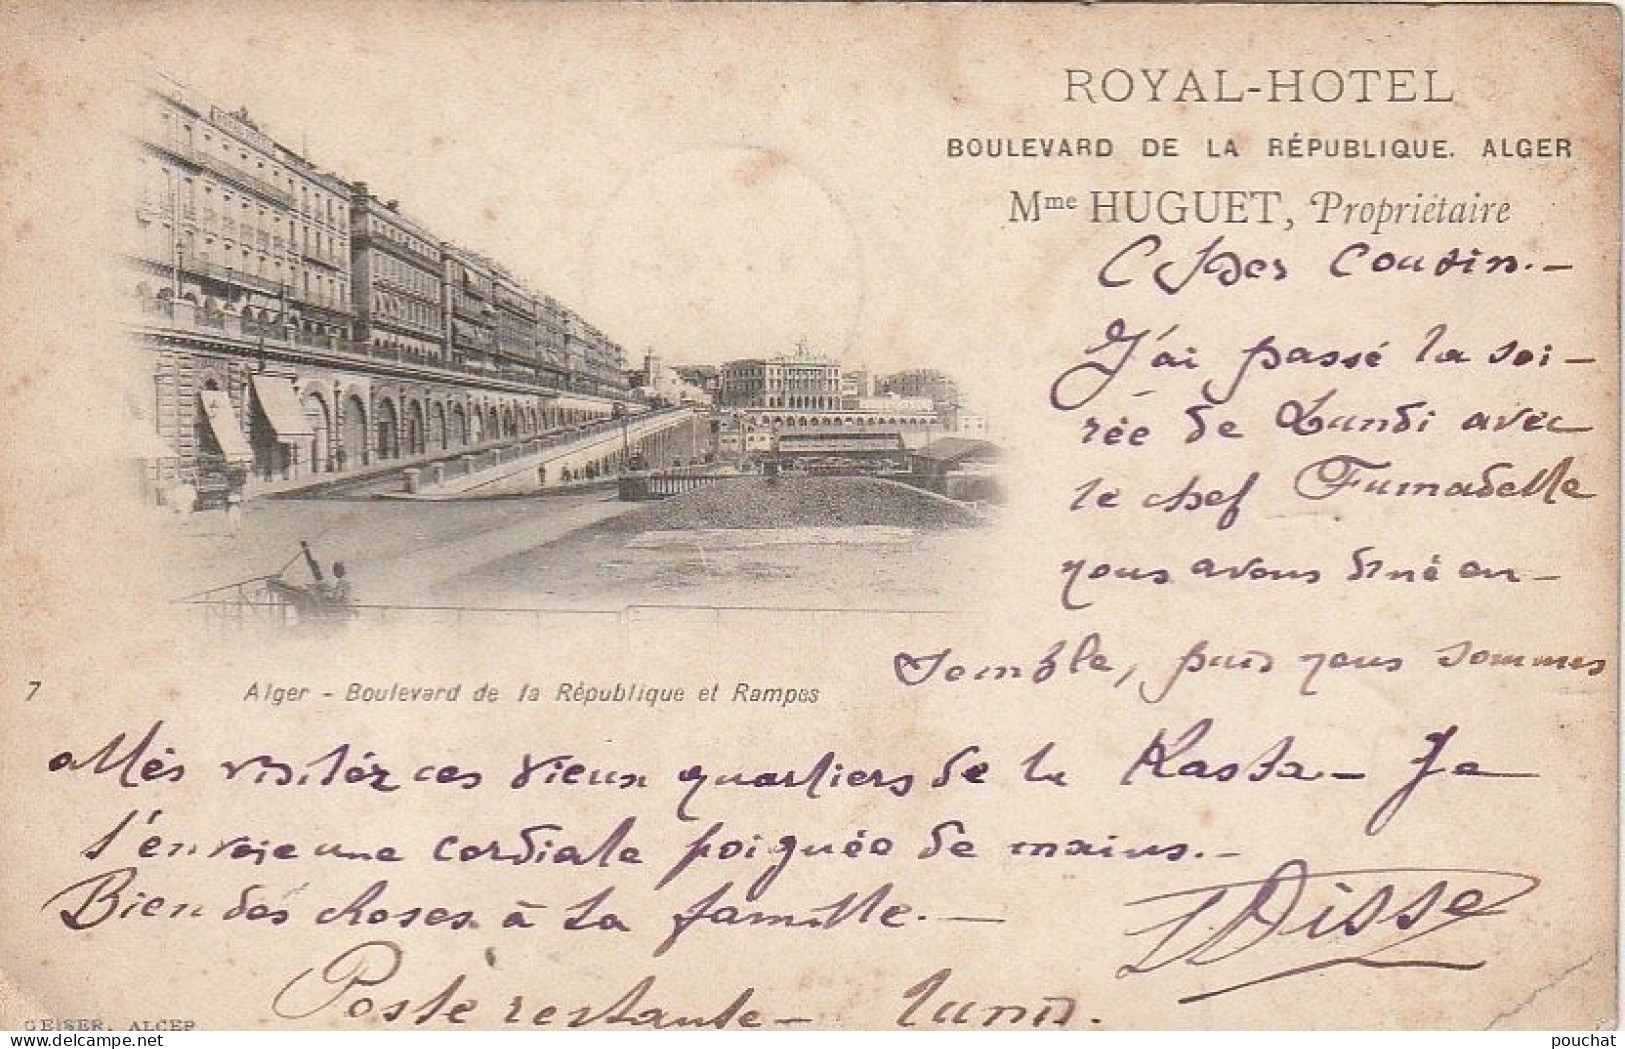 ROYAL-HOTEL
BOULEVARD DE LA RÉPUBLIQUE. ALGER
Mme HUGUET, Propriétaire
Cher Cousin.-
J'ai passé la soi-
rée de Lundi avec
le chef Fumadelle
nous avons diné en-
semble, puis nous sommes
7
Alger - Boulevard de la République et Rampes
allés visiter ces vieux quartiers de la Kasba - Je
t'envoie une cordiale poignée de mains.-
Bien des choses à la famille.-
Disse
Poste restante - Tunis.
GEISER. ALGER
pouchat